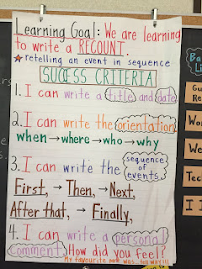 Learning Goal: We are learning
to write a RECOUNT:
★retelling an event in sequence
SUCCESS CRITERIA
1. I can write a title and date.
2. I can write the orientation
when → where → who → why
3. I can write the sequence
of events.
First, → Then, → Next,
After that, → Finally,
4. I can write a personal
comment. How did you feel?
My favourite
Ba
Li
Gu
Re
Wor
We
Tec
I I